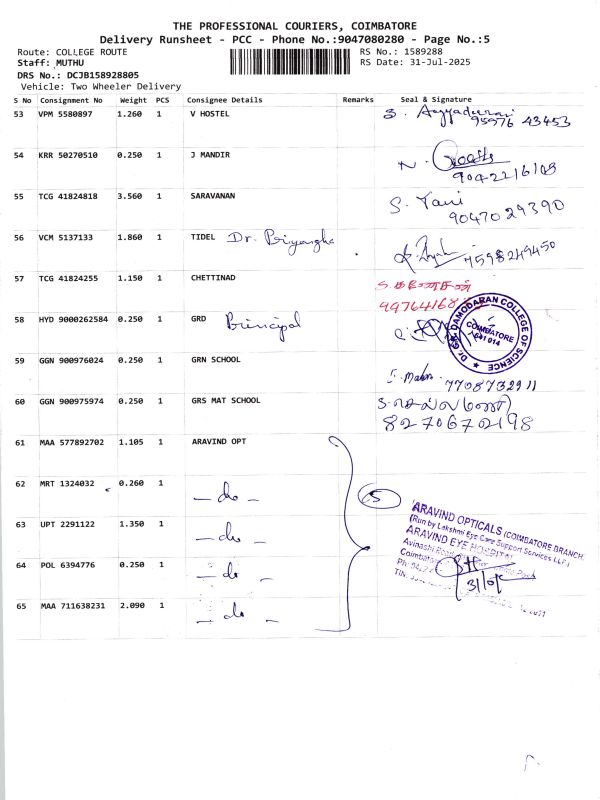 THE PROFESSIONAL COURIERS, COIMBATORE
Delivery Runsheet - PCC - Phone No.:9047080280 - Page No.:5
Route: COLLEGE ROUTE RS No.: 1589288
Staff: MUTHU RS Date: 31-Jul-2025
DRS No.: DCJB158928805
Vehicle: Two Wheeler Delivery
S No Consignment No Weight PCS Consignee Details Remarks Seal & Signature
53 VPM 5580897 1.260 1 V HOSTEL S.
95976 43453
54 KRR 50270510 0.250 1 J MANDIR N.
9042216149
55 TCG 41824818 3.560 1 SARAVANAN S. Tani
9047029390
56 VCM 5137133 1.860 1 TIDEL Dr. Priyangha
7598249450
57 TCG 41824255 1.150 1 CHETTINAD S. கணேசன்
49764168
58 HYD 9000262584 0.250 1 GRD Principal
Dr. G.R. DAMODARAN COLLEGE OF SCIENCE
COIMBATORE
641 014
59 GGN 900976024 0.250 1 GRN SCHOOL
7708732911
60 GGN 900975974 0.250 1 GRS MAT SCHOOL S. செல்வமணி
8270672198
61 MAA 577892702 1.105 1 ARAVIND OPT
62 MRT 1324032 0.260 1 - do -
5
63 UPT 2291122 1.350 1 - do -
ARAVIND OPTICALS (COIMBATORE BRANCH)
(Run by Lakshmi Eye Care Support Services LLP)
ARAVIND EYE HOSPITAL
Avinashi Road,
Coimbatore
64 POL 6394776 0.250 1 - do -
65 MAA 711638231 2.090 1 - do -